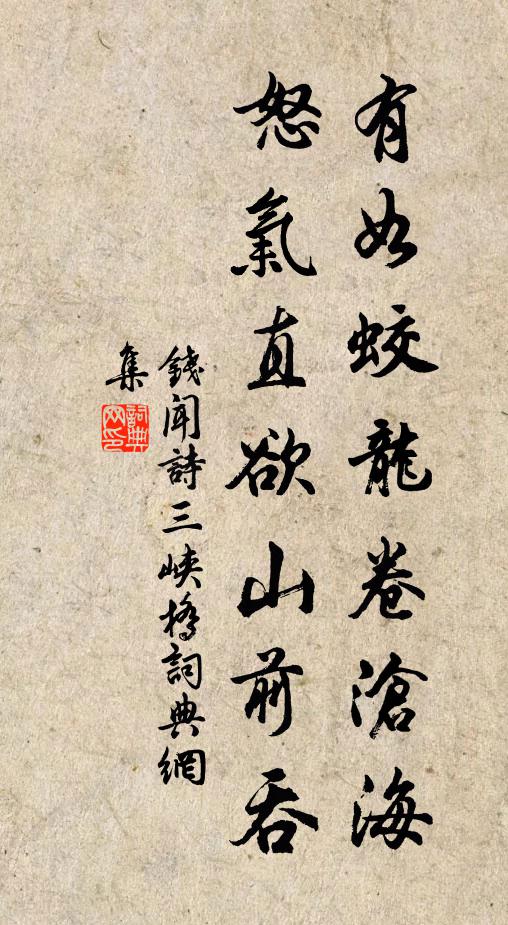 有如蛟龍卷滄海
怒氣直欲山前吞
錢聞詩三峽橋詞典網
集
詞典網印